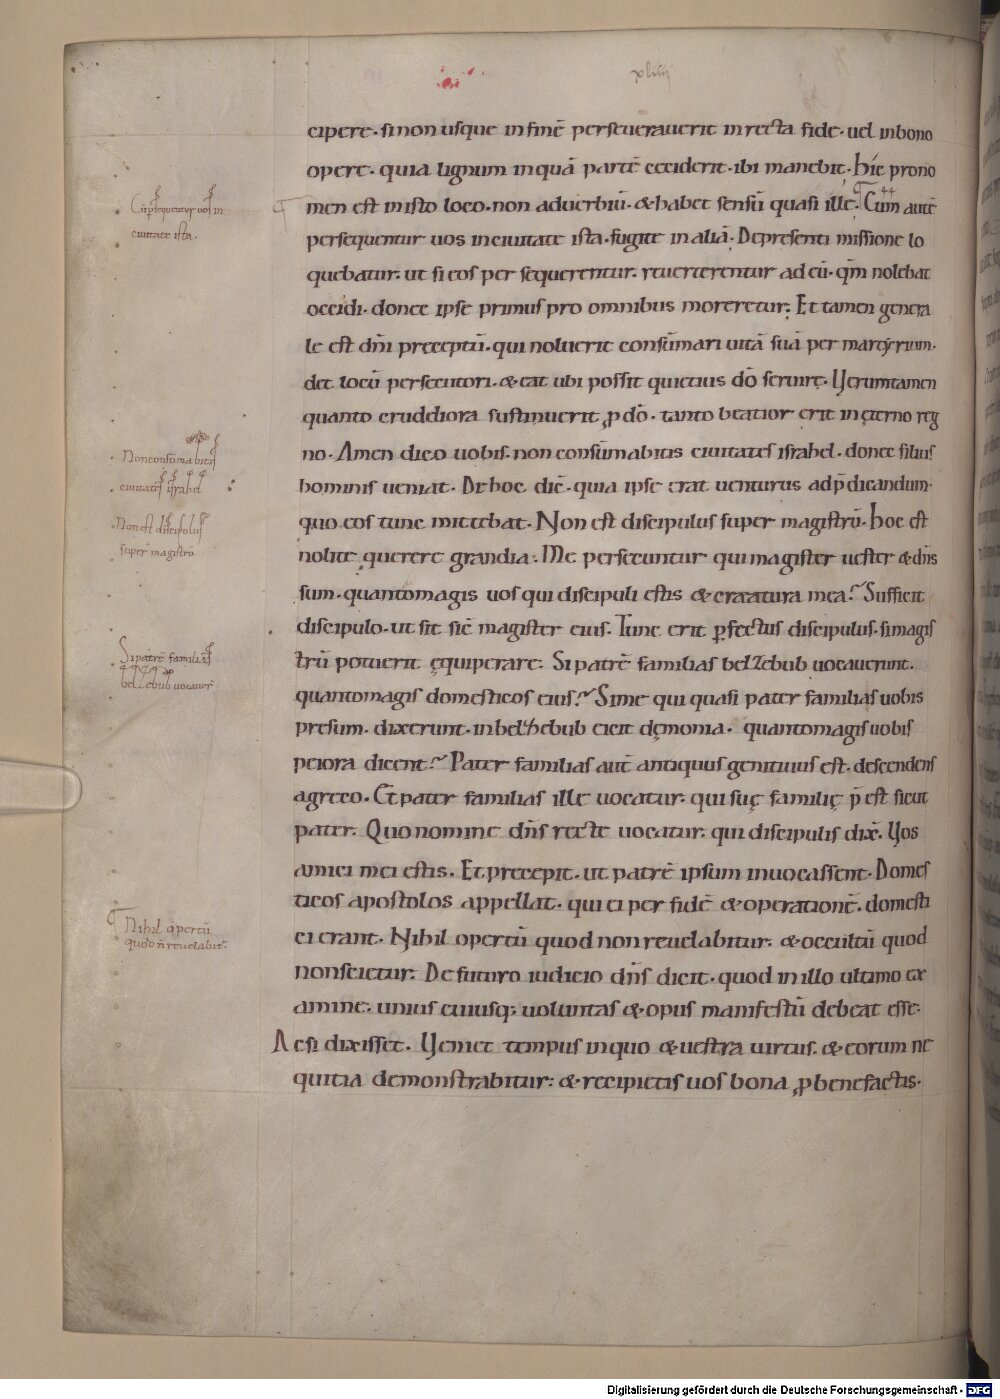 xliiij
cipere. si non usque in finē perseuerauerit in recta fide. uel in bono
opere. quia lignum in quā partē ceciderit. ibi manebit. hic prono
men est in isto loco. non aduerbiū. & habet sensū quasi ille. Cum autē
persequentur uos in ciuitate ista. fugite in aliā. De presenti missione lo
quebatur. ut si eos persequerentur. reuerterentur ad eū. qm̄ nolebat
occidi. donec ipse primus pro omnibus moreretur. Et tamen genera
le est dn̄i preceptū. qui noluerit consūmari uitā suā per martyrium.
det locū persecutori. & eat ubi possit quietius dō seruire. Uerumtamen
quanto crudeliora sustinuerit ꝓ dō. tanto beatior erit in ęterno reg
no. Amen dico uobis. non consūmabitis ciuitates israhel. donec filius
hominis ueniat. De hoc dic̄. quia ipse erat uenturus ad p̄dicandum.
quo eos tunc mittebat. Non est discipulus super magistrū. hoc est
nolite querere grandia. Me persecuntur qui magister uester & dn̄s
sum. quantomagis uos qui discipuli estis & creatura mea? Sufficit
discipulo. ut sit sic̄ magister eius. Tunc erit ꝑfectus discipulus. si magis
trū potuerit ęquiperare. Si patrē familias belzebub uocauerunt.
quantomagis domesticos eius? Si me qui quasi pater familias uobis
presum. dixerunt. in belzhebub eicit dęmonia. quantomagis uobis
peiora dicent? Pater familias aut̄ antiquus genitiuus est. descendens
a greco. Et pater familias ille uocatur. qui suę familię p̄est sicut
pater. Quo nomine dn̄s recte uocatur. qui discipulis dix̄. Uos
amici mei estis. Et precepit. ut patrē ipsum inuocassent. Domes
ticos apostolos appellat. qui ei per fidē & operationē. domesti
ci erant. Nihil opertū quod non reuelabitur. & occultū quod
non scietur. De futuro iudicio dn̄s dicit. quod in illo ultimo ex
amine. unius cuiusq; uoluntas & opus manifestū debeat esse.
Ac si dixisset. Ueniet tempus in quo & uestra uirtus. & eorum ne
quitia demonstrabitur. & recipietis uos bona ꝓ benefactis.
Cū ꝑsequentur uos in
ciuitate ista.
Non consūmabitis
ciuitates israhel
Non est discipulus
super magistrū
Si patrē familias
belzebub uocauer̄
Nihil opertū
quod n̄ reuelabit᷑.
Digitalisierung gefördert durch die Deutsche Forschungsgemeinschaft - DFG